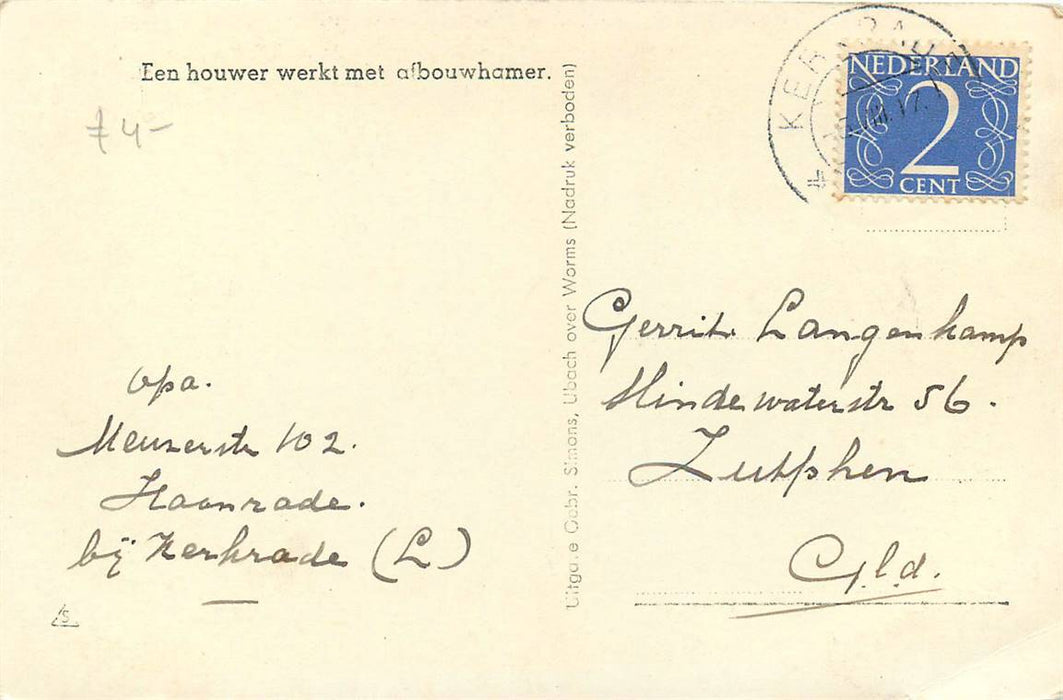 Een houwer werkt met afbouwhamer.
74-
opa.
Meuserstr 102.
Haanrade.
bij Kerkrade (L)
Uitgave Gebr. Simons, Ubach over Worms (Nadruk verboden)
KERKRADE
NEDERLAND
2
CENT
Gerrit Langenkamp
56.
Zutphen
Gld.